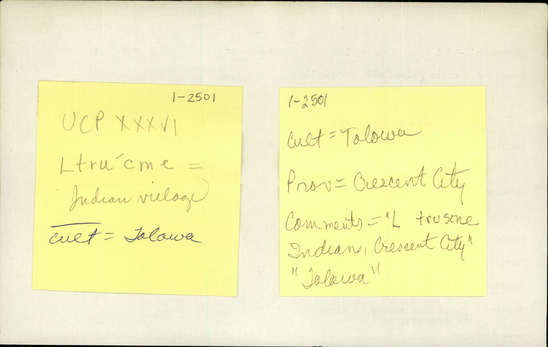 1-2501
UCP XXXVI
Ltru´cme =
Indian village
cult = Tolowa
1-2501
Cult = Tolowa
Prov = Crescent City
Comments = "L trusme
Indian, Crescent City"
"Tolowa"